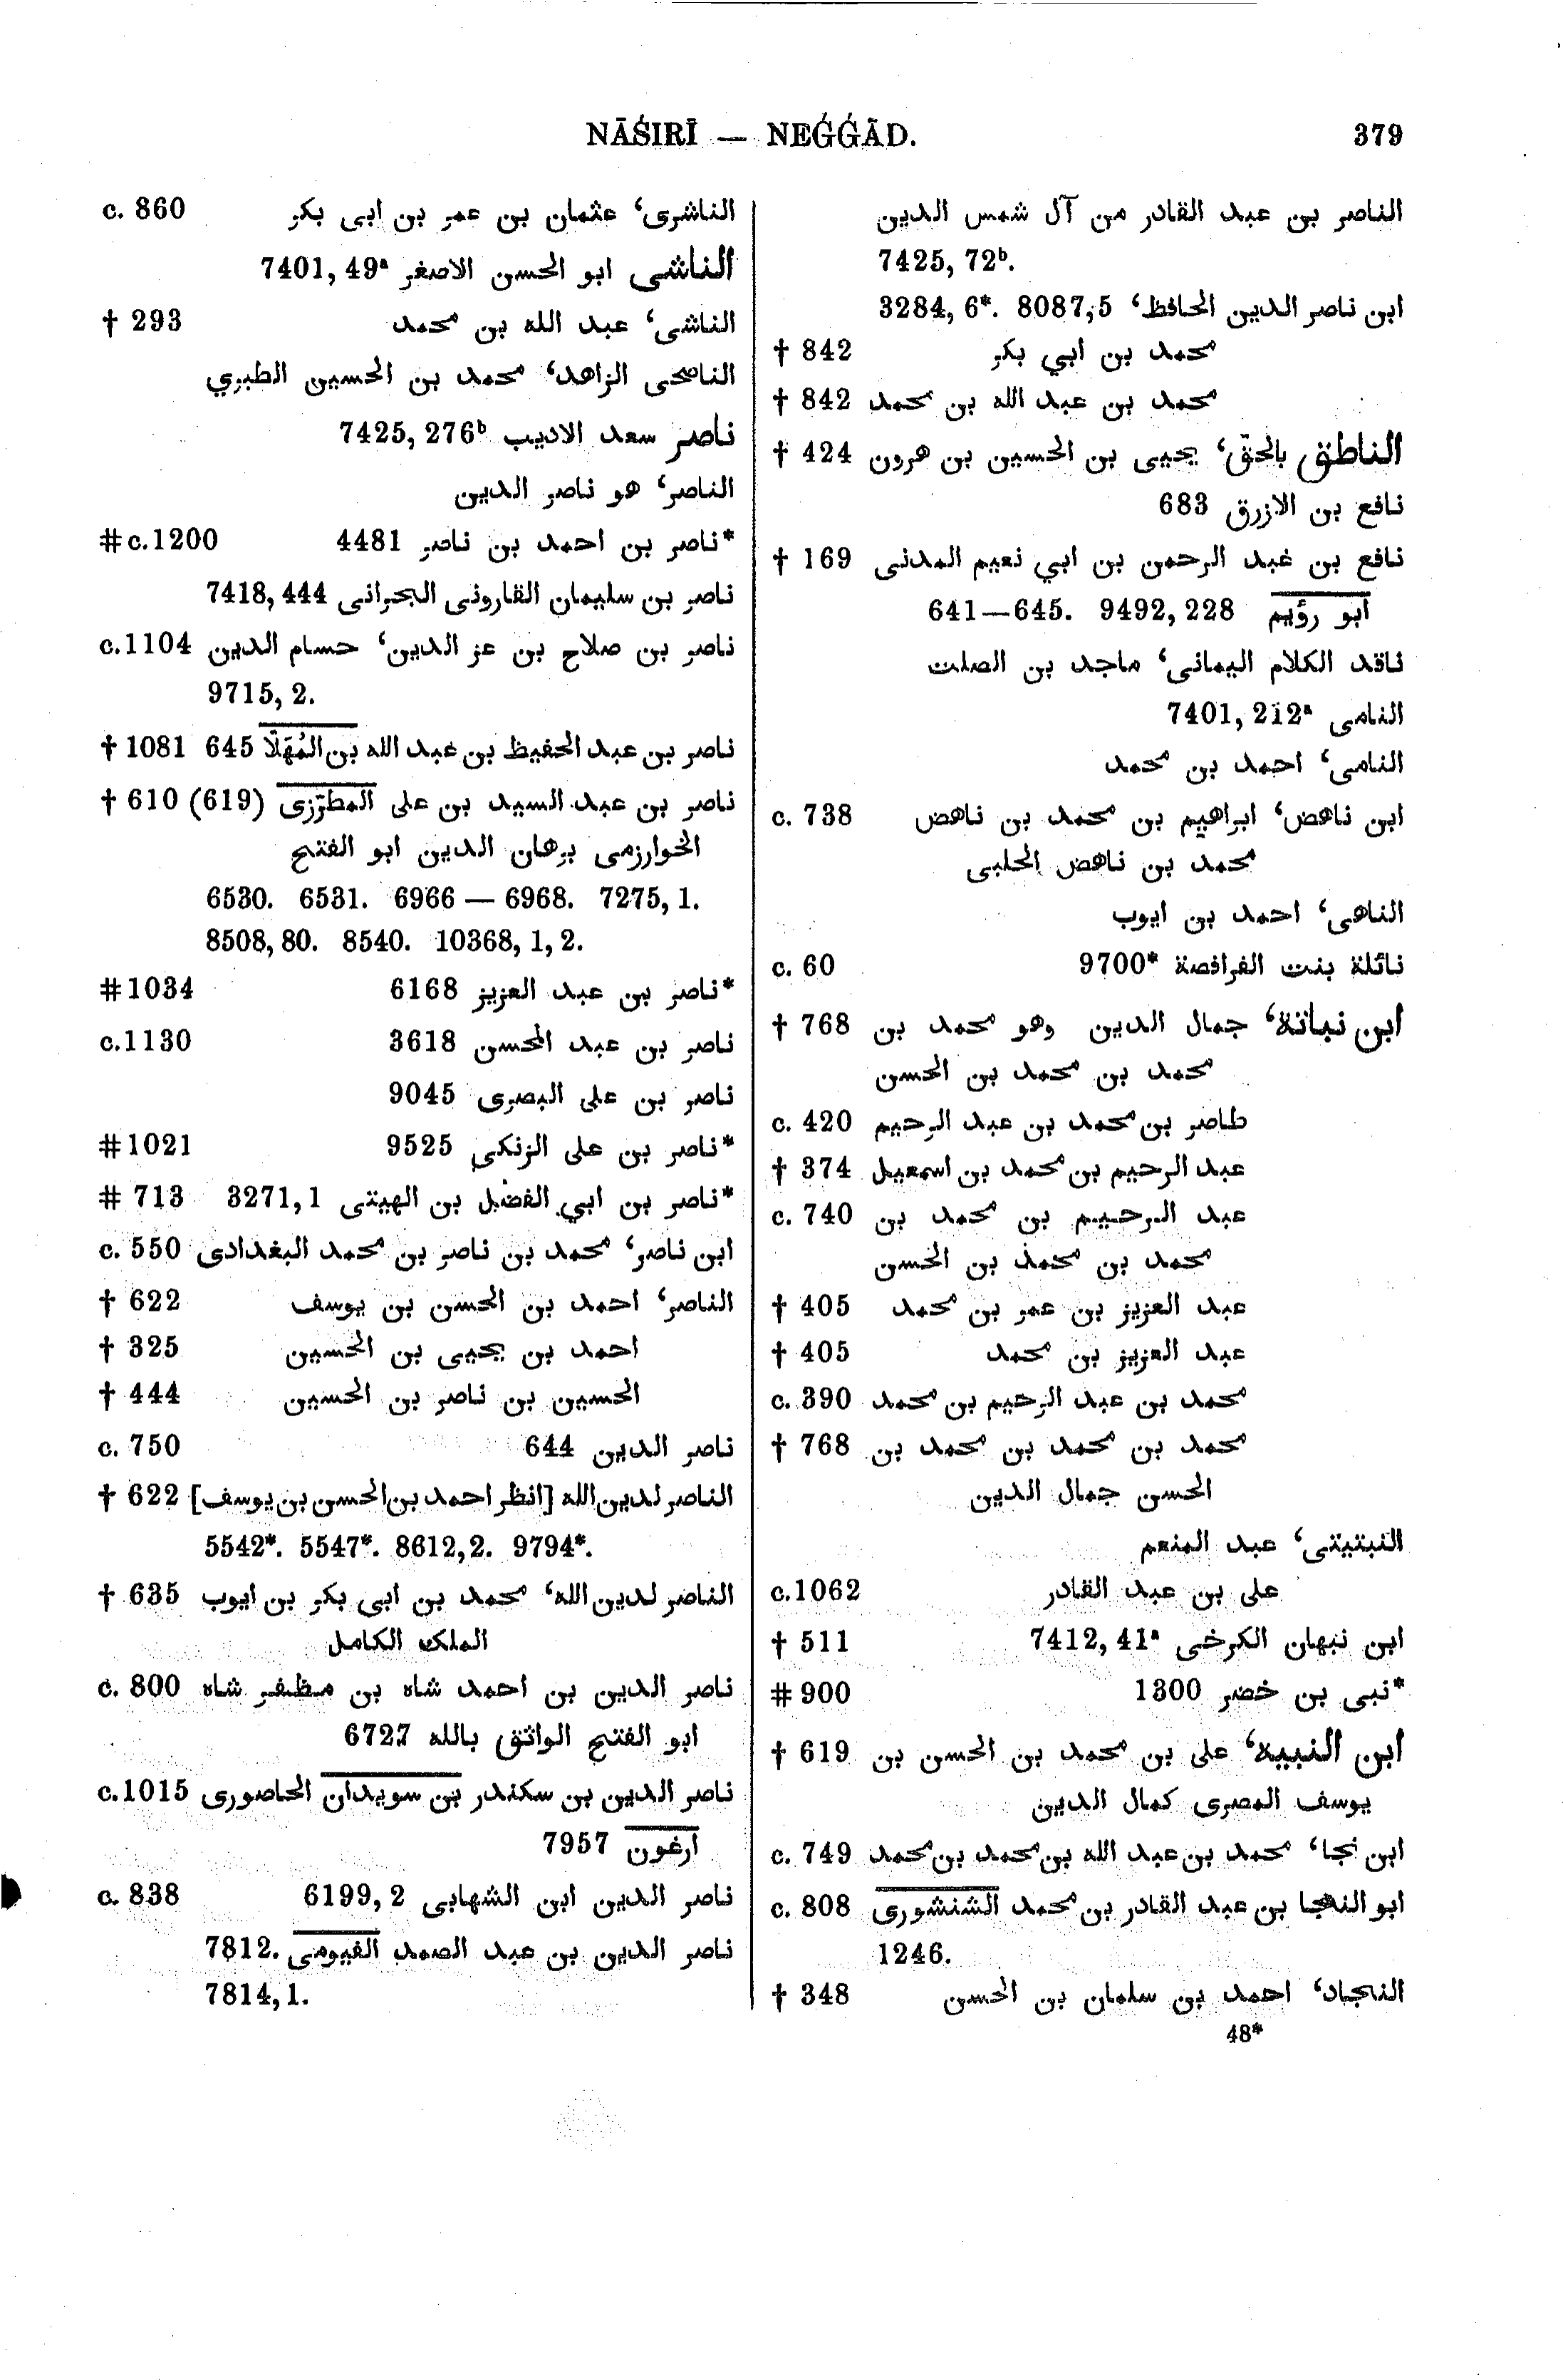 NĀŚIRĪ — NEǴǴĀD. 379
الناشرى، عثمان بن عمر بن ابى بكر c. 860
الناشى ابو الحسن الاصغر 7401, 49ᵃ
الناشى، عبد الله بن محمد † 293
الناصحى الزاهد، محمد بن الحسين الطبري
ناصر سعد الاديب 7425, 276ᵇ
الناصر، هو ناصر الدين
*ناصر بن احمد بن ناصر 4481 #c.1200
ناصر بن سليمان القارونى البحرانى 7418, 444
ناصر بن صلاح بن عز الدين، حسام الدين c.1104
9715, 2.
ناصر بن عبد الحفيظ بن عبد الله بن المُهَلَّا 645 † 1081
ناصر بن عبد السيد بن على المطرّزى (619) 610 †
الخوارزمى برهان الدين ابو الفتح
6530. 6531. 6966 — 6968. 7275, 1.
8508, 80. 8540. 10368, 1, 2.
*ناصر بن عبد العزيز 6168 #1034
ناصر بن عبد المحسن 3618 c.1130
ناصر بن على البصرى 9045
*ناصر بن على الزنكي 9525 #1021
*ناصر بن ابي الفضل بن الهيتى 3271, 1 # 713
ابن ناصر، محمد بن ناصر بن محمد البغدادى c. 550
الناصر، احمد بن الحسن بن يوسف † 622
احمد بن يحيى بن الحسين † 325
الحسين بن ناصر بن الحسين † 444
ناصر الدين 644 c. 750
الناصر لدين الله [انظر احمد بن الحسن بن يوسف] † 622
5542*. 5547*. 8612, 2. 9794*.
الناصر لدين الله، محمد بن ابى بكر بن ايوب † 635
الملك الكامل
ناصر الدين بن احمد شاه بن مظفر شاه c. 800
ابو الفتح الواثق بالله 6727
ناصر الدين بن سكندر بن سويدان الحاصورى c.1015
ارغون 7957
ناصر الدين ابن الشهابى 6199, 2 c. 838
ناصر الدين بن عبد الصمد الفيومى 7812.
7814, 1.
الناصر بن عبد القادر من آل شمس الدين
7425, 72ᵇ.
ابن ناصر الدين الحافظ، 8087, 5 3284, 6*.
محمد بن ابي بكر † 842
محمد بن عبد الله بن محمد † 842
الناطق بالحقّ، يحيى بن الحسين بن هرون † 424
نافع بن الازرق 683
نافع بن عبد الرحمن بن ابي نعيم المدنى † 169
ابو رؤيم 9492, 228 641—645.
ناقد الكلام اليمانى، ماجد بن الصلت
النامى 7401, 212ᵃ
النامى، احمد بن محمد
ابن ناهض، ابراهيم بن محمد بن ناهض c. 738
محمد بن ناهض الحلبى
الناهى، احمد بن ايوب
نائلة بنت الفرافصة 9700* c. 60
ابن نباتة، جمال الدين وهو محمد بن † 768
محمد بن محمد بن الحسن
طاصر بن محمد بن عبد الرحيم c. 420
عبد الرحيم بن محمد بن اسمعيل † 374
عبد الرحيم بن محمد بن c. 740
محمد بن محمد بن الحسن
عبد العزيز بن عمر بن محمد † 405
عبد العزيز بن محمد † 405
محمد بن عبد الرحيم بن محمد c. 390
محمد بن محمد بن محمد بن † 768
الحسن جمال الدين
النبتيتى، عبد المنعم
على بن عبد القادر c.1062
ابن نبهان الكرخى 7412, 41ᵃ † 511
*نبى بن خضر 1300 # 900
ابن النبيه، على بن محمد بن الحسن بن † 619
يوسف المصرى كمال الدين
ابن نجا، محمد بن عبد الله بن محمد بن محمد c. 749
ابو النجا بن عبد القادر بن محمد الشنشورى c. 808
1246.
النجاد، احمد بن سلمان بن الحسن † 348
48*